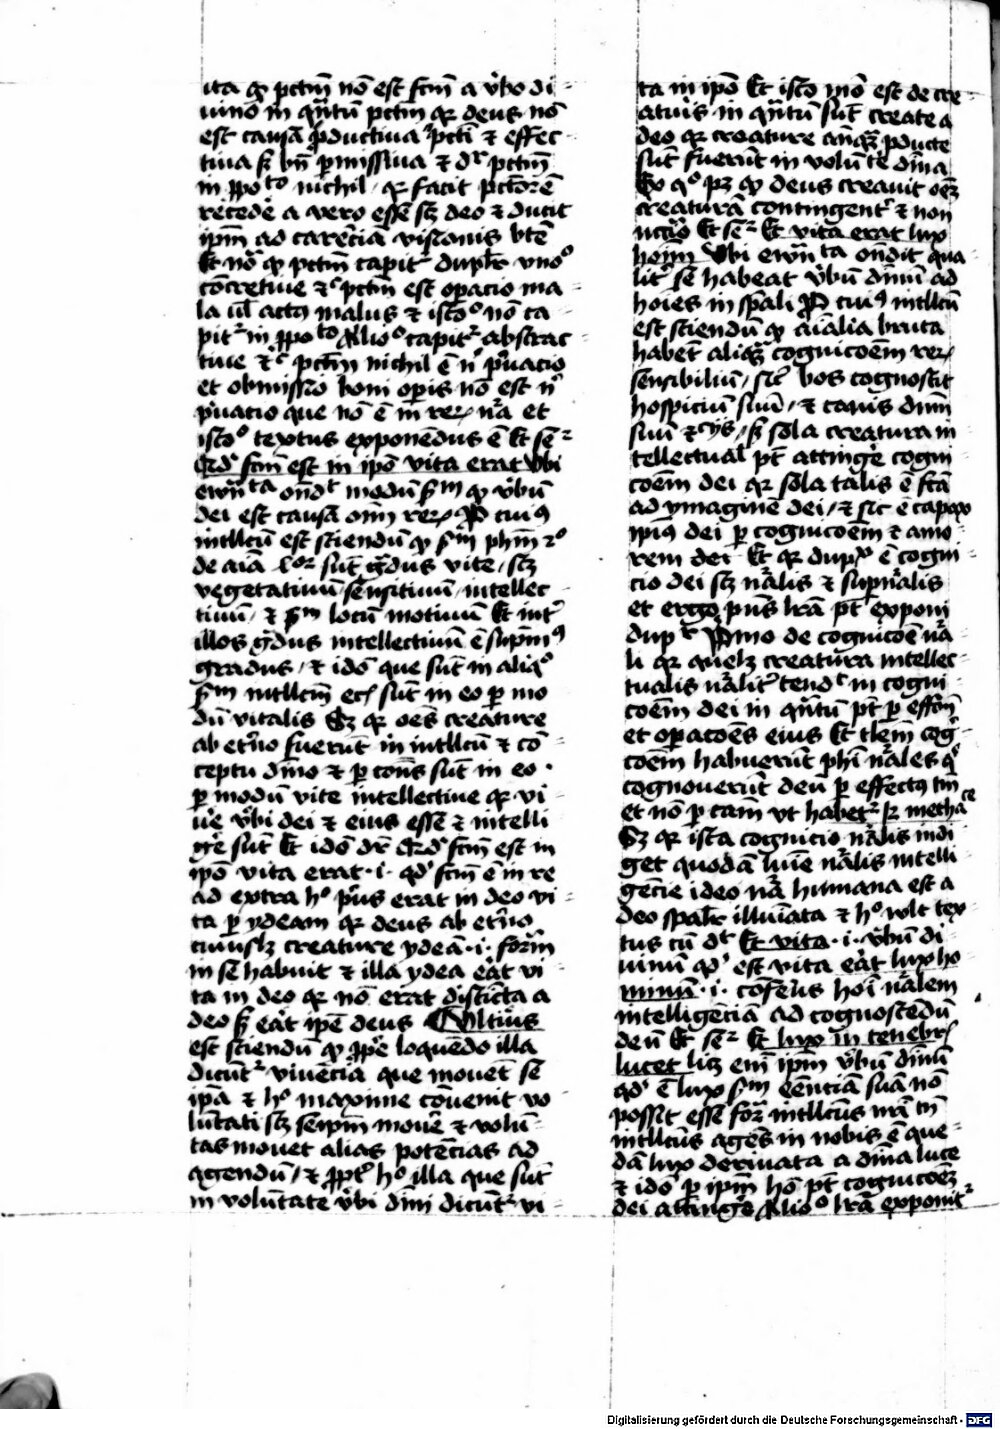 ita qȝ pctm̄ nō est fctm̄ a v̓bo di-
uino in qn̄tū pctm̄ qr deus nō
est causa ꝓductiua pcti ⁊ effec-
tiua sꝫ bn̄ pmissiua ⁊ dr pctm̄
in ꝓpoto nichil qr facit pctorē
recede a vero esse scȝ deo ⁊ ducit
ipm̄ ad carēciā visionis btē
Et nō qȝ pctm̄ capitr duplr vno
cōcretiue ⁊c pctm̄ est opacio ma
la ul actꝯ malus ⁊ isto nō ca
pitr in ꝓpoto Alio capitr abstrac
tiue ⁊c pctm̄ nichil ē n pͥuacio
et obmissio boni opis nō est n
pͥuacio que nō ē in reꝝ nā et
isto textus exponēdus ē Et ser
Qd fctm̄ est in ipō vita erat Vbi
ewn̄ta ondt modū sm qȝ v̓bū
dei est causā oīm reꝝ Pꝰ cuiꝰ
intllcū est sciendū qȝ sm phm̄ 2o
de aīa sūt gͣdus vite scȝ
vegetatiuū sensitiuū intellec
tiuū ⁊ sm locū motiuū Et int
illos gͣdus intellectiuū ē supm̄ꝰ
gradus ⁊ idō que sūt in aliqo
sm intllcm̄ ecꝫ sūt in eo p mo
dū vitalis Sȝ qr oēs creature
ab etn̓o fuerūt in intllcū ⁊ cō
ceptu dīno ⁊ p cōns sūt in eo ·
p modū vite intellectiue qr vi
ue v̓bi dei ⁊ eius esse ⁊ intelli
ge sūt Et idō dr Qd fctm̄ est in
ipō vita erat · i · qd fctm̄ ē in re
ad extra ho pus erat in deo vi
ta p ydeam qr deus ab etn̓o
cuiuslȝ creature ydeā · i · formā
in se habuit ⁊ illa ydea eāt vi
ta in deo qr nō erat disticta a
deo sꝫ eāt ipē deus Ulterius
est sciendū qȝ ꝓpe loquēdo illa
dicūtr viuēcia que mouēt se
ipā ⁊ ho maxime cōuenit vo
lūtati scȝ seipm̄ moue ⁊ volū-
tas mouet alias potēcias ad
agendū ⁊ ꝓpt ho illa que sūt
in volūtate v̓bi dīni dicūtr vi-
ta in ipō Et isto mō est de cre
atuis in qn̄tū sūt create a
deo qr creature anqȝ pducte
sūt fuerūt in volūte dīna
Ex qo pȝ qȝ deus creauit oēȝ
creaturā contingentr ⁊ non
ncc̄io Et ser Et vita erat lux
hoīm Vbi ewn̄ta ondit qua
litr se habeat v̓bū dīnū ad
hoīes in spāli Pꝰ cuiꝰ intllcū
est sciendū qȝ aīalia bruta
habēt aliqȝ cognicoēm reꝝ
sensibiliū sic bos cognoscit
hospiciū suū ⁊ canis dnm̄
suū ⁊ sꝫ sola creatura in
tellectual pt attinge cogni
coēm dei qr sola talis ē fcā
ad ymaginē dei ⁊ sic ē capax
ipiꝰ dei p cognicoēm ⁊ amo
rem dei Et qr dupx ē cogni
cio dei scȝ nālis ⁊ supn̄alis
et ergo pns lrā pt exponi
dupr Pmo de cognicoē nā
li qr quelȝ creatura intellec-
tualis nālitr tendt in cogni
coēm dei in qn̄tū pt p effcm̄
et opacoēs eius Et tlēm cog
coēm habuerūt phi nāles qi
cognouerūt deū p effectꝰ tm̄
et nō p cam̄ vt habetr metha
Sȝ qr ista cognicio nālis indi
get quodā luīe nālis intelli
gēcie ideo nā humana est a
deo spālr illuīata ⁊ ho vlt tex
tus cū dt Et vita · i · v̓bū di
uinū qd est vita eāt lux ho
minū · i · cōferēs hoī nālem
intelligēciā ad cognoscēdū
deū Et ser Et lux in tenebrꝭ
lucet licȝ enī ipm̄ v̓bū dīnū
qd ē lux sm eēnciā suā nō
possit esse for intllcūs nrā tn̄
intllcūs agēs in nobis ē que-
dā lux deriuata a dīna luce
⁊ idō p ipm̄ hō pt cognicoēȝ
dei attinge Alio lrā exponitr
Digitalisierung gefördert durch die Deutsche Forschungsgemeinschaft - DFG